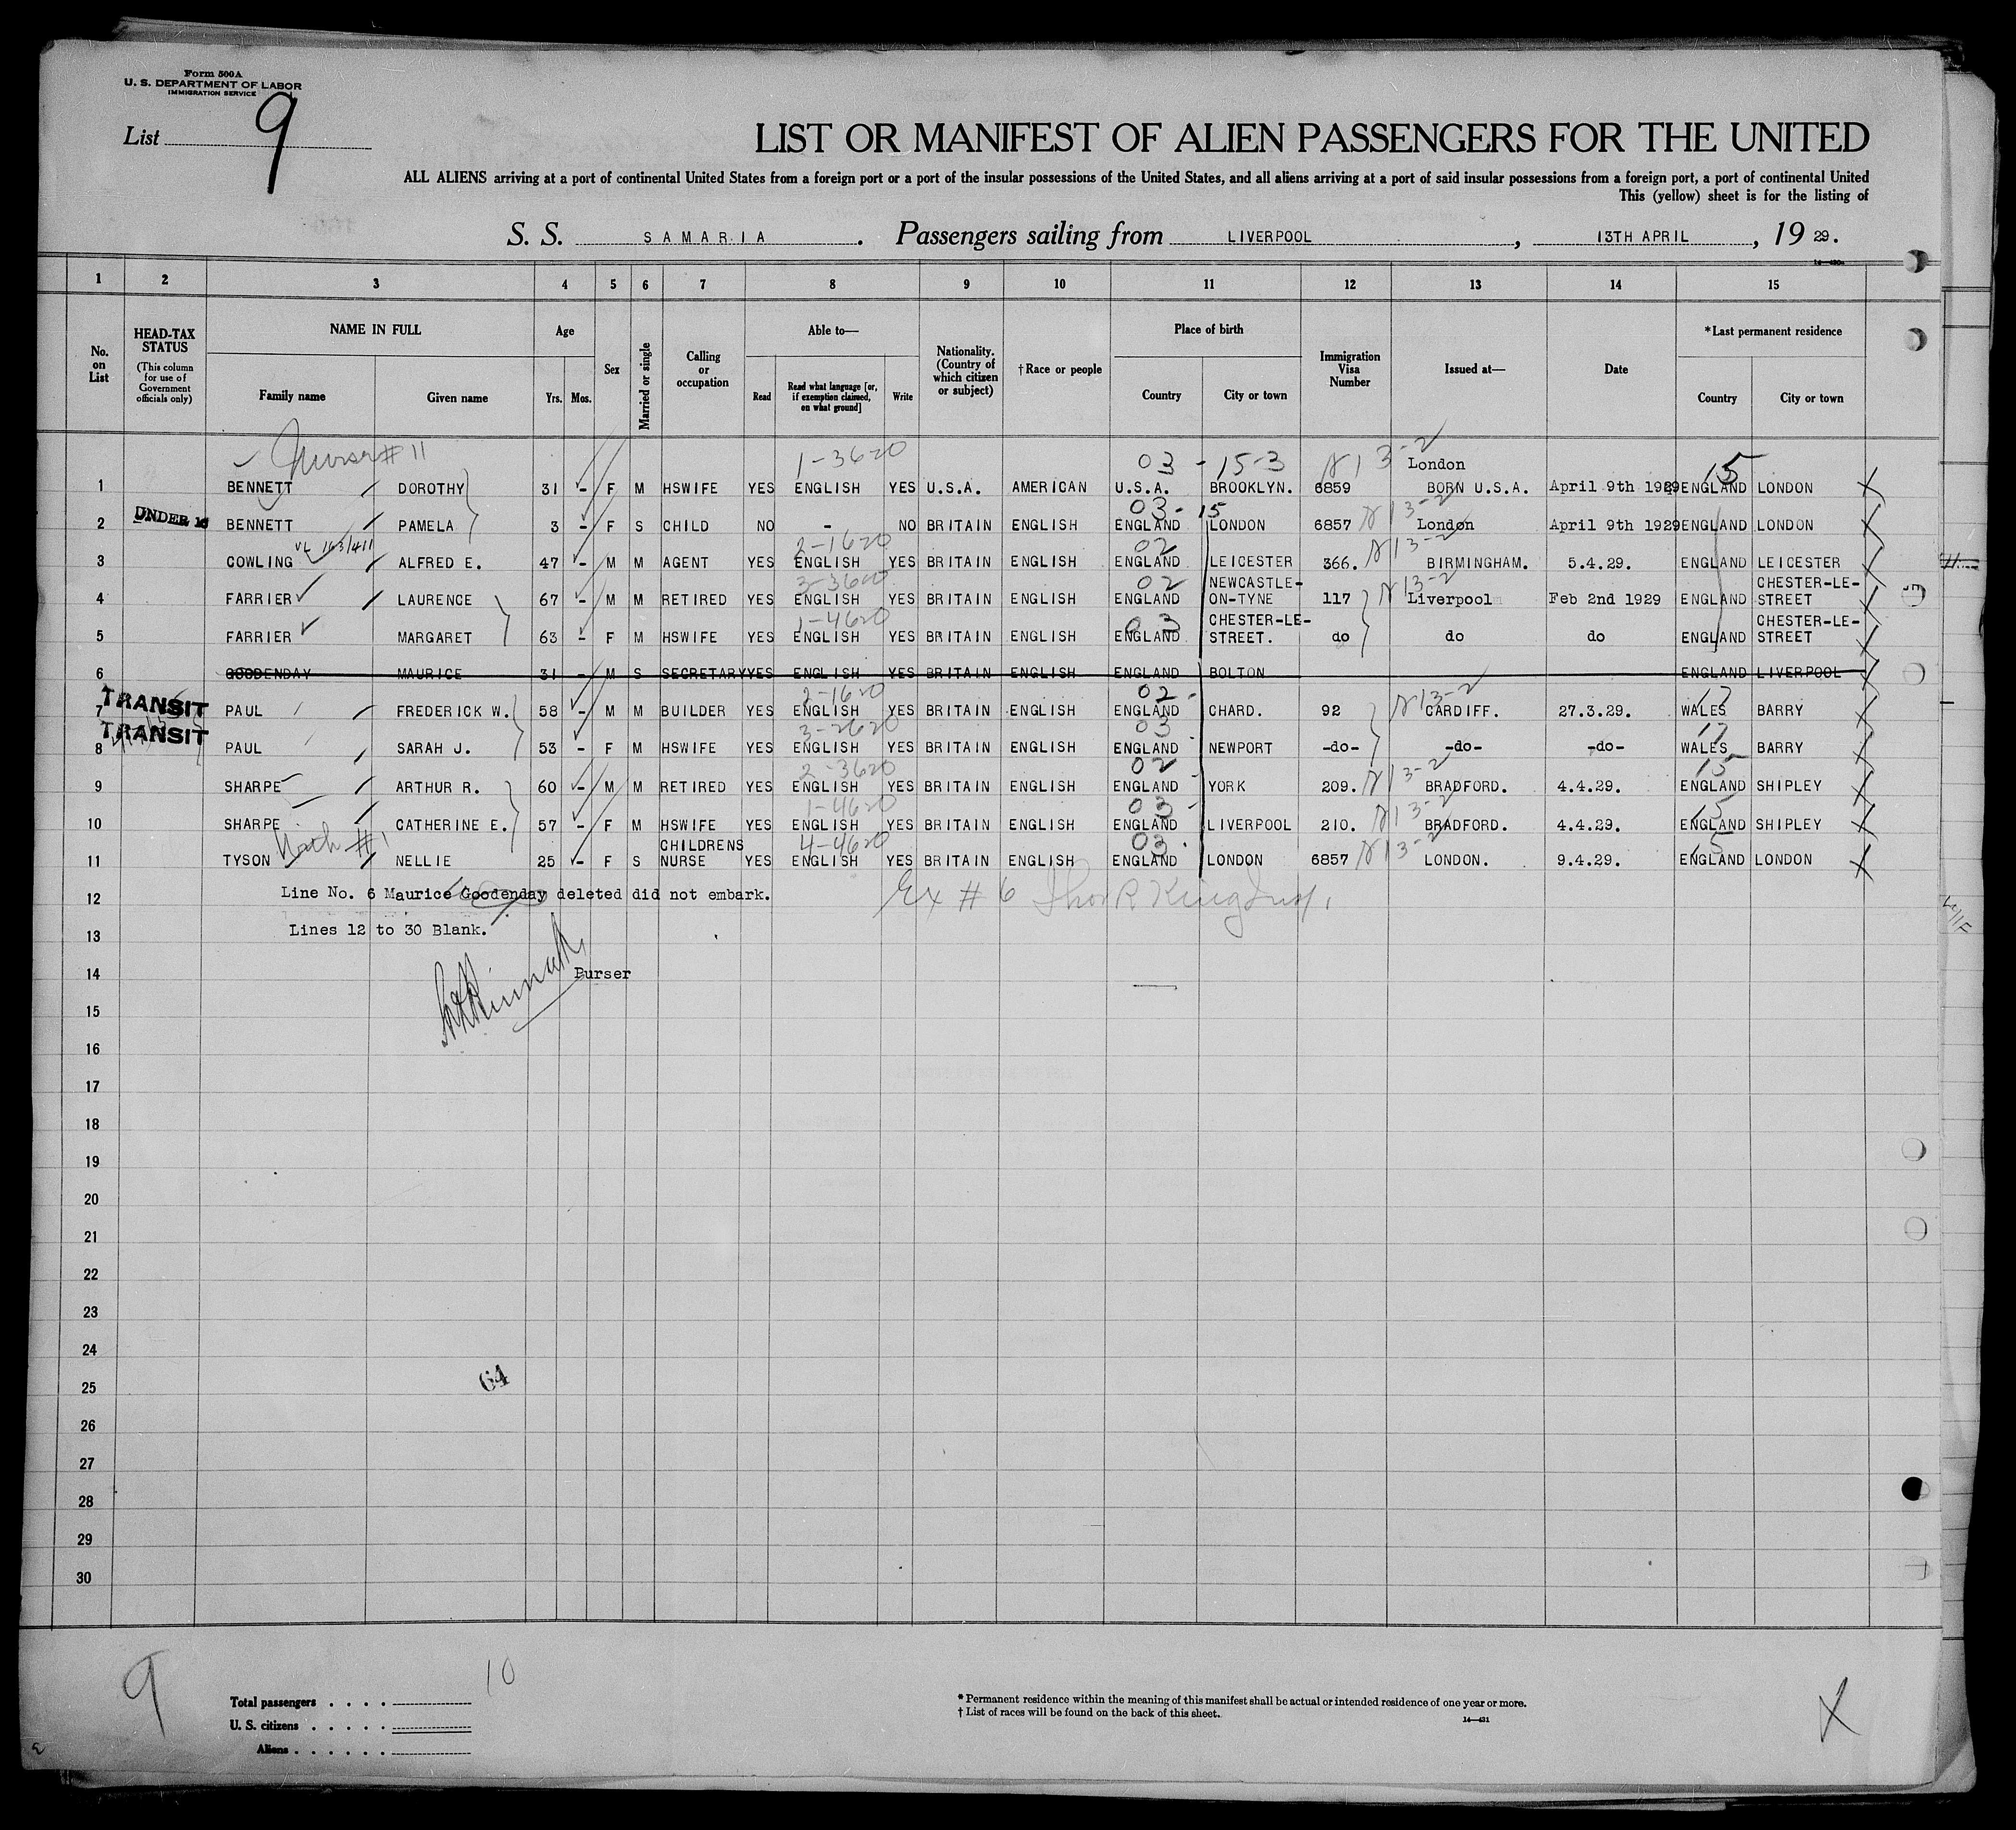 Form 500A
U. S. DEPARTMENT OF LABOR
IMMIGRATION SERVICE
List 9
LIST OR MANIFEST OF ALIEN PASSENGERS FOR THE UNITED
ALL ALIENS arriving at a port of continental United States from a foreign port or a port of the insular possessions of the United States, and all aliens arriving at a port of said insular possessions from a foreign port, a port of continental United
This (yellow) sheet is for the listing of
S. S. SAMARIA. Passengers sailing from LIVERPOOL, 13TH APRIL, 19 29.
1 2 3 4 5 6 7 8 9 10 11 12 13 14 15
No. on List
HEAD-TAX STATUS (This column for use of Government officials only)
NAME IN FULL
Family name Given name
Age
Yrs. Mos.
Sex
Married or single
Calling or occupation
Able to—
Read Read what language [or, if exemption claimed, on what ground] Write
Nationality. (Country of which citizen or subject)
†Race or people
Place of birth
Country City or town
Immigration Visa Number
Issued at—
Date
*Last permanent residence
Country City or town
Nurse # 11 1-3620 03 - 15-3 London 15
1 BENNETT DOROTHY 31 - F M HSWIFE YES ENGLISH YES U.S.A. AMERICAN U.S.A. BROOKLYN. 6859 BORN U.S.A. April 9th 1929 ENGLAND LONDON
03-15
2 UNDER 16 BENNETT PAMELA 3 - F S CHILD NO - NO BRITAIN ENGLISH ENGLAND LONDON 6857 London April 9th 1929 ENGLAND LONDON
163/411 2-1620 02
3 COWLING ALFRED E. 47 - M M AGENT YES ENGLISH YES BRITAIN ENGLISH ENGLAND LEICESTER 366. BIRMINGHAM. 5.4.29. ENGLAND LEICESTER
3-3620 02
4 FARRIER LAURENCE 67 - M M RETIRED YES ENGLISH YES BRITAIN ENGLISH ENGLAND NEWCASTLE-ON-TYNE 117 Liverpool Feb 2nd 1929 ENGLAND CHESTER-LE-STREET
1-4620 03
5 FARRIER MARGARET 63 - F M HSWIFE YES ENGLISH YES BRITAIN ENGLISH ENGLAND CHESTER-LE-STREET. do do do ENGLAND CHESTER-LE-STREET
6 GOODENDAY MAURICE 31 - M S SECRETARY YES ENGLISH YES BRITAIN ENGLISH ENGLAND BOLTON ENGLAND LIVERPOOL
2-1620 02 - 17
7 TRANSIT PAUL FREDERICK W. 58 - M M BUILDER YES ENGLISH YES BRITAIN ENGLISH ENGLAND CHARD. 92 CARDIFF. 27.3.29. WALES BARRY
3-2620 03 17
8 TRANSIT PAUL SARAH J. 53 - F M HSWIFE YES ENGLISH YES BRITAIN ENGLISH ENGLAND NEWPORT -do- -do- -do- WALES BARRY
2-3620 02 15
9 SHARPE ARTHUR R. 60 - M M RETIRED YES ENGLISH YES BRITAIN ENGLISH ENGLAND YORK 209. BRADFORD. 4.4.29. ENGLAND SHIPLEY
1-4620 03 - 15
10 SHARPE CATHERINE E. 57 - F M HSWIFE YES ENGLISH YES BRITAIN ENGLISH ENGLAND LIVERPOOL 210. BRADFORD. 4.4.29. ENGLAND SHIPLEY
With #1 4-4620 03 15
11 TYSON NELLIE 25 - F S CHILDRENS NURSE YES ENGLISH YES BRITAIN ENGLISH ENGLAND LONDON 6857 LONDON. 9.4.29. ENGLAND LONDON
12 Line No. 6 Maurice Goodenday deleted did not embark. Ex # 6
13 Lines 12 to 30 Blank.
14 Purser
15
16
17
18
19
20
21
22
23
24
25
64
26
27
28
29
30
9
10
Total passengers
U. S. citizens
Aliens
* Permanent residence within the meaning of this manifest shall be actual or intended residence of one year or more.
† List of races will be found on the back of this sheet.
14—431
X